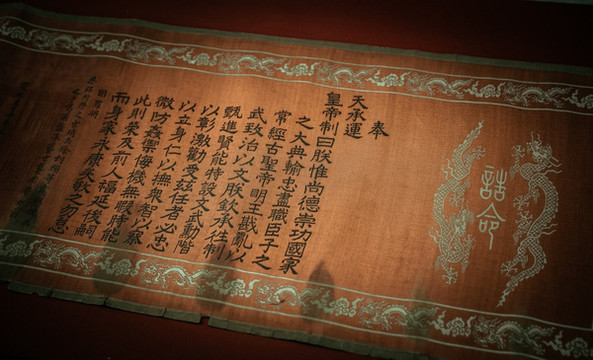 誥命
奉
天承運
皇帝制曰朕惟尚德崇功國家
之大典輸忠盡職臣子之
常經古聖帝明王戡亂以
武致治以文朕欽承往制
甄進賢能特設文武勳階
以彰激勸受茲任者必忠
以立身仁以撫眾智以察
微防姦禦侮機無暇時能
此則榮及前人福延後嗣
而身家永康矣敬之勿怠